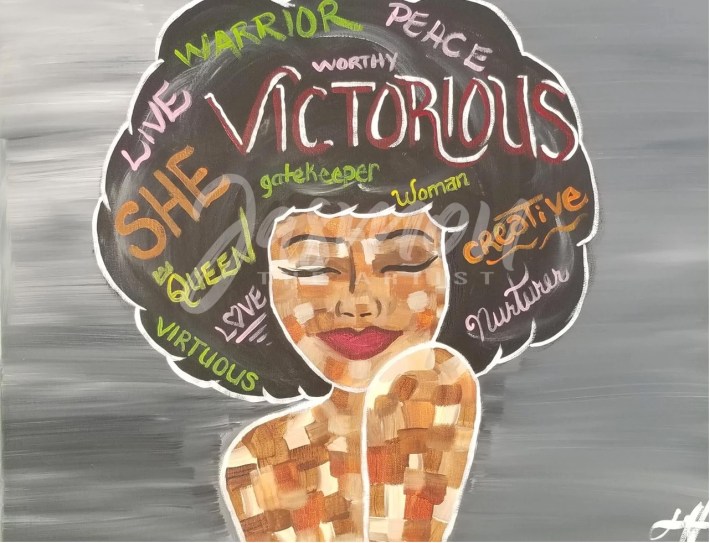 WARRIOR
PEACE
WORTHY
LIVE
VICTORIOUS
SHE
gatekeeper
Woman
creative
QUEEN
LOVE
Nurturer
VIRTUOUS
THE ARTIST